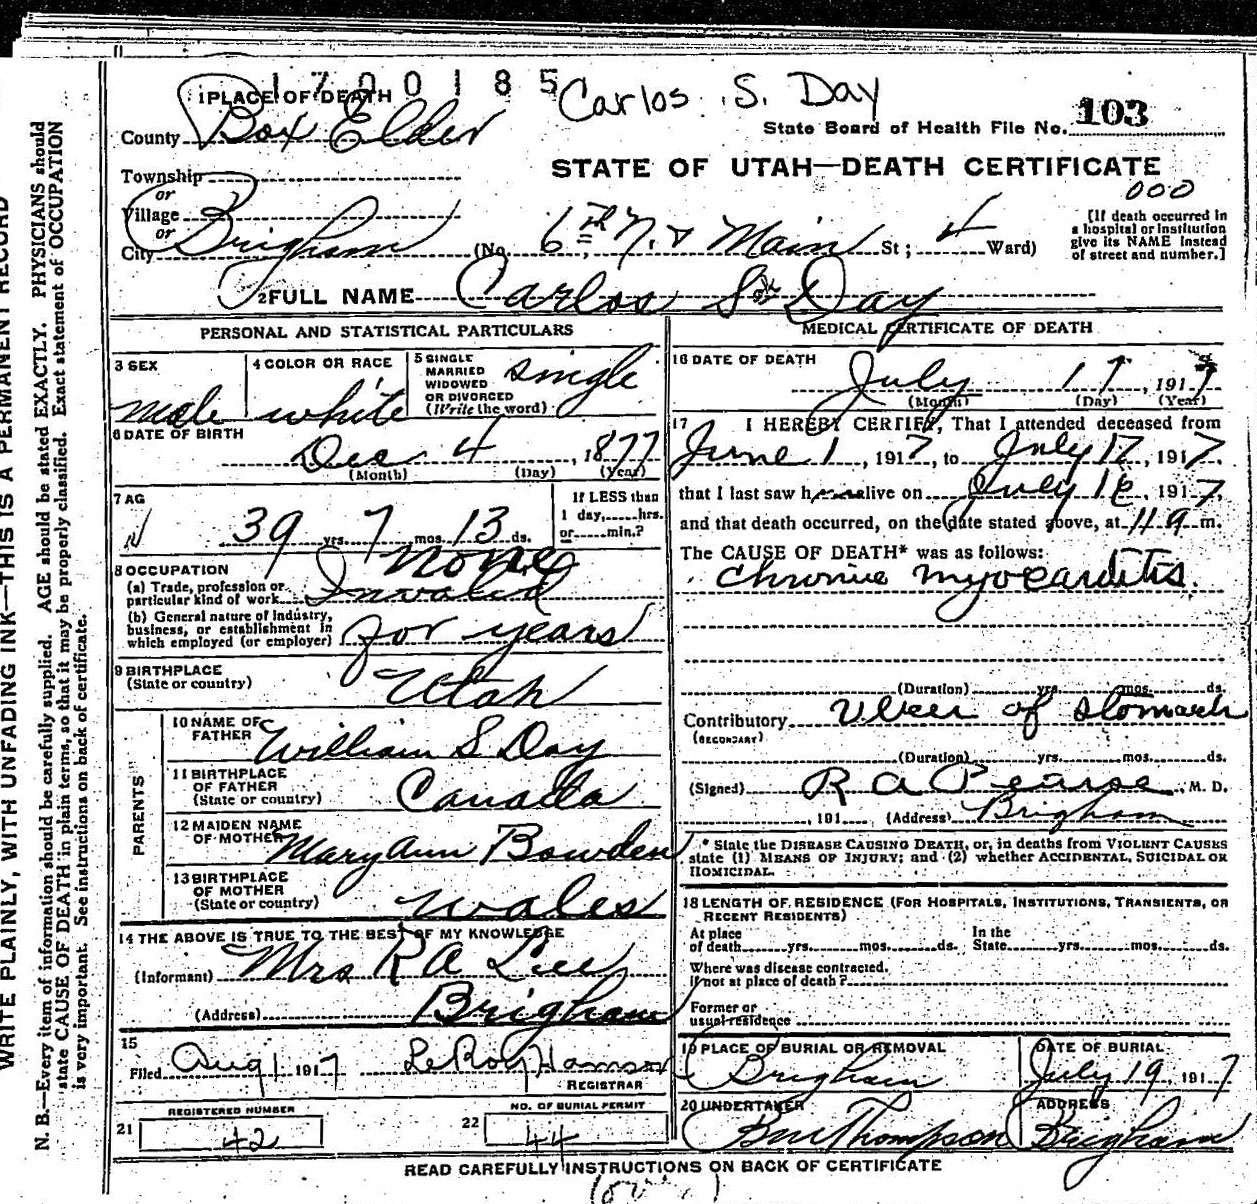 1720185
Carlos S. Day
1 PLACE OF DEATH
County Box Elder
State Board of Health File No. 103
STATE OF UTAH—DEATH CERTIFICATE
000
Township
or
Village
or
City Brigham (No. 6th N. & Main St; 4 Ward)
[If death occurred in
a hospital or institution
give its NAME instead
of street and number.]
2 FULL NAME Carlos S. Day
PERSONAL AND STATISTICAL PARTICULARS
3 SEX
male
4 COLOR OR RACE
white
5 SINGLE
MARRIED
WIDOWED
OR DIVORCED
(Write the word)
single
6 DATE OF BIRTH
Dec 4, 1877
(Month) (Day) (Year)
7 AG
39 yrs. 7 mos. 13 ds.
If LESS than
1 day,.....hrs.
or.....min.?
8 OCCUPATION
none
(a) Trade, profession or
particular kind of work
Invalid
(b) General nature of industry,
business, or establishment in
which employed (or employer)
for years
9 BIRTHPLACE
(State or country)
Utah
PARENTS
10 NAME OF
FATHER
William S Day
11 BIRTHPLACE
OF FATHER
(State or country)
Canada
12 MAIDEN NAME
OF MOTHER
Mary Ann Bowden
13 BIRTHPLACE
OF MOTHER
(State or country)
Wales
14 THE ABOVE IS TRUE TO THE BEST OF MY KNOWLEDGE
(Informant) Mrs R A Lee
(Address) Brigham
15
Filed Aug 1 1917 LeRoy Hamson
REGISTRAR
21 REGISTERED NUMBER
42
22 NO. OF BURIAL PERMIT
44
MEDICAL CERTIFICATE OF DEATH
16 DATE OF DEATH
July 17, 1917
(Month) (Day) (Year)
17 I HEREBY CERTIFY, That I attended deceased from
June 1, 1917, to July 17, 1917,
that I last saw h alive on July 16, 1917,
and that death occurred, on the date stated above, at 11 9 m.
The CAUSE OF DEATH* was as follows:
chronic myocarditis.
(Duration) yrs. mos. ds.
Contributory Ulcer of stomach
(SECONDARY)
(Duration) yrs. mos. ds.
(Signed) R A Pearse, M. D.
, 191 (Address) Brigham
* State the DISEASE CAUSING DEATH, or, in deaths from VIOLENT CAUSES
state (1) MEANS OF INJURY; and (2) whether ACCIDENTAL, SUICIDAL OR
HOMICIDAL.
18 LENGTH OF RESIDENCE (FOR HOSPITALS, INSTITUTIONS, TRANSIENTS, OR
RECENT RESIDENTS)
At place
of death yrs. mos. ds.
In the
State yrs. mos. ds.
Where was disease contracted,
If not at place of death?
Former or
usual residence
19 PLACE OF BURIAL OR REMOVAL
Brigham
DATE OF BURIAL
July 19, 1917
20 UNDERTAKER
Thompson
ADDRESS
Brigham
READ CAREFULLY INSTRUCTIONS ON BACK OF CERTIFICATE
WRITE PLAINLY, WITH UNFADING INK—THIS IS A PERMANENT RECORD
N. B.—Every item of information should be carefully supplied. AGE should be stated EXACTLY. PHYSICIANS should
state CAUSE OF DEATH in plain terms, so that it may be properly classified. Exact statement of OCCUPATION
is very important. See instructions on back of certificate.